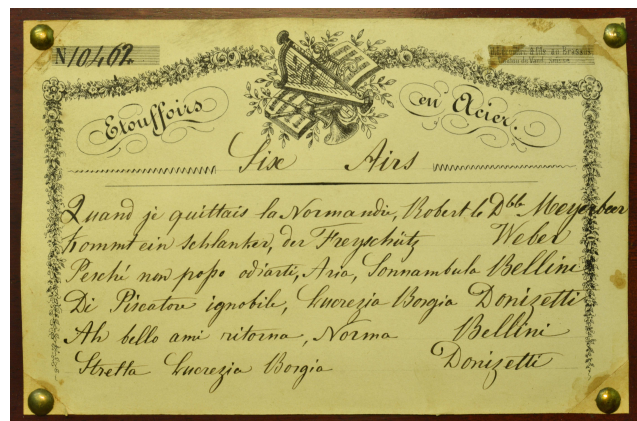 N 10462
Etouffoirs en Acier.
Six Airs
Quand je quittais la Normandie, Robert le Dble Meyerbeer
Kommt ein schlanker, der Freyschütz Weber
Perchè non posso odiarti, Aria, Sonnambula Bellini
Di Piscatore ignobile, Lucrezia Borgia Donizetti
Ah bello ami ritorna, Norma Bellini
Stretta Lucrezia Borgia Donizetti